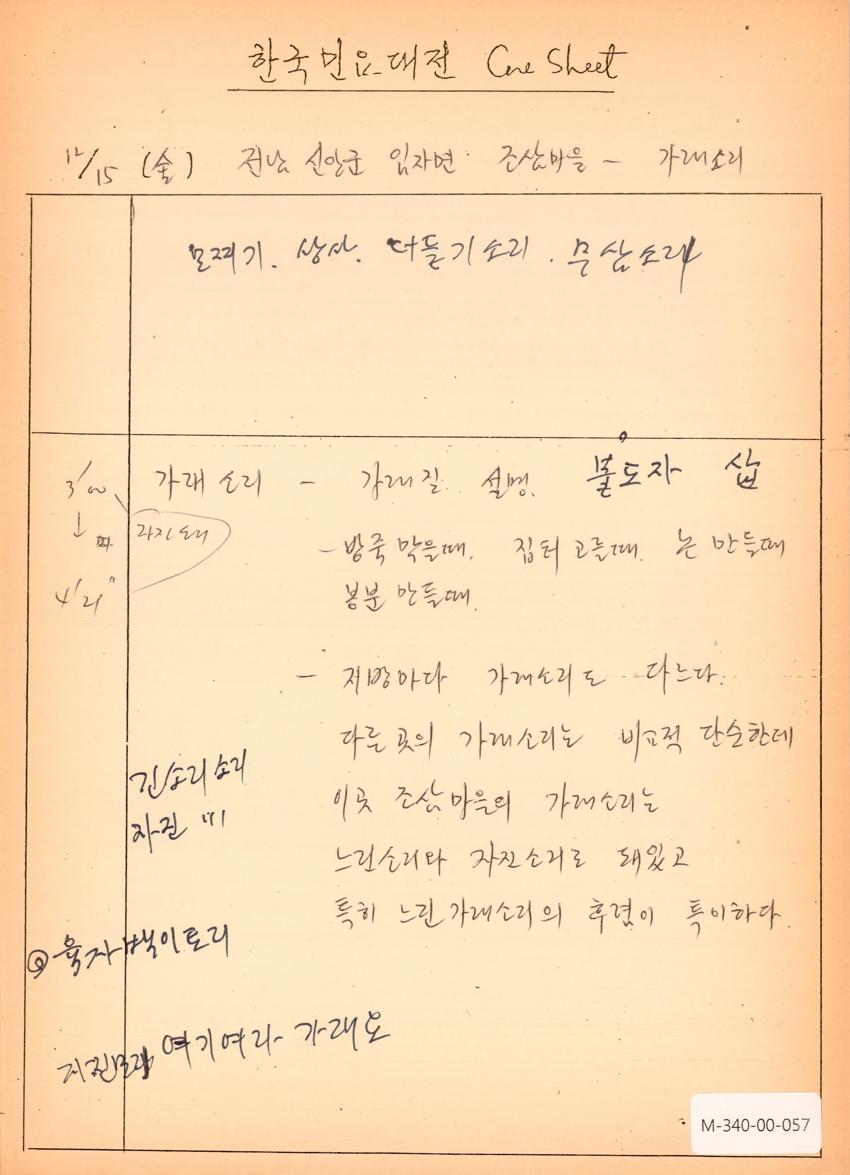 한국민요대전 Cue Sheet
12/15 (金) 전남 신안군 임자면 조삼마을 - 가래소리
모찌기. 상사. 더듬기소리. 무삼소리
3'00 가래소리 - 가래질 설명. 불도자 삽
↓ 자진소리
- 방죽 막을때. 집터 고를때. 논 만들때
4'21"
봉분 만들때.
- 지방마다 가래소리도 다르다.
다른 곳의 가래소리는 비교적 단순한데
긴소리 소리
이곳 조삼마을의 가래소리는
자진 〃
느린소리와 자진소리로 돼있고
특히 느린가래소리의 후렴이 특이하다.
◎ 육자백이토리
여기여라 가래요
M-340-00-057